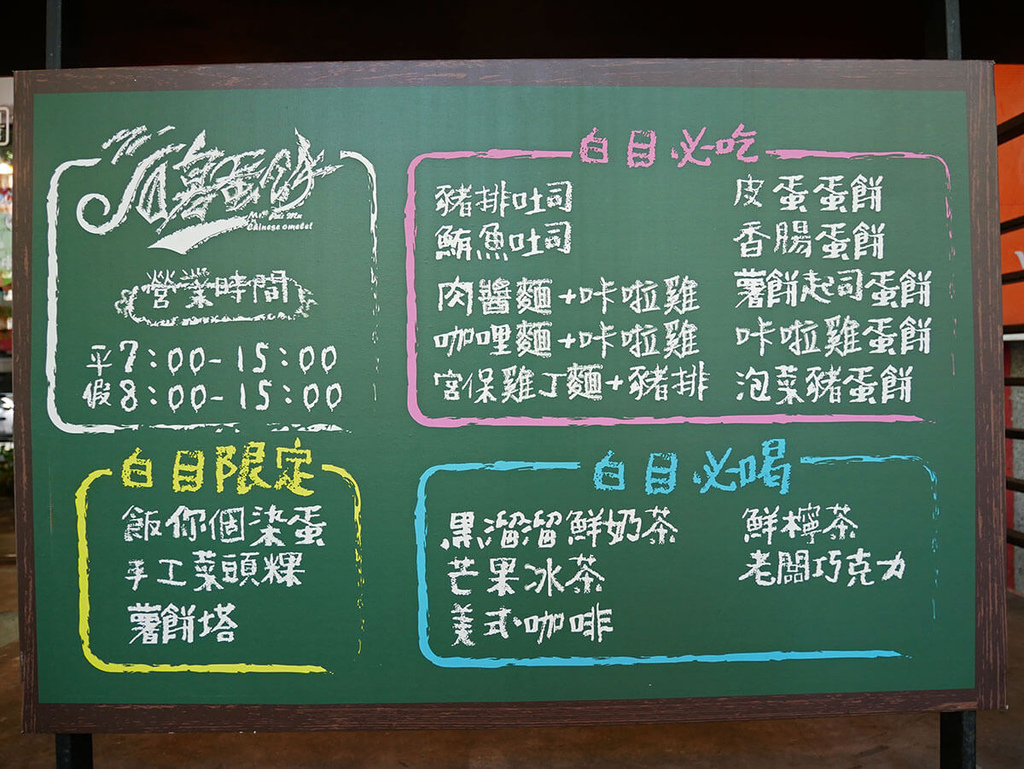 蛋餅
Chinese omelet
營業時間
平7:00-15:00
假8:00-15:00
白目必吃
豬排吐司
鮪魚吐司
肉醬麵+咔啦雞
咖哩麵+咔啦雞
宮保雞丁麵+豬排
皮蛋蛋餅
香腸蛋餅
薯餅起司蛋餅
咔啦雞蛋餅
泡菜豬蛋餅
白目限定
飯你個染蛋
手工菜頭粿
薯餅塔
白目必喝
黑溜溜鮮奶茶
芒果冰茶
美式咖啡
鮮檸茶
老闆巧克力